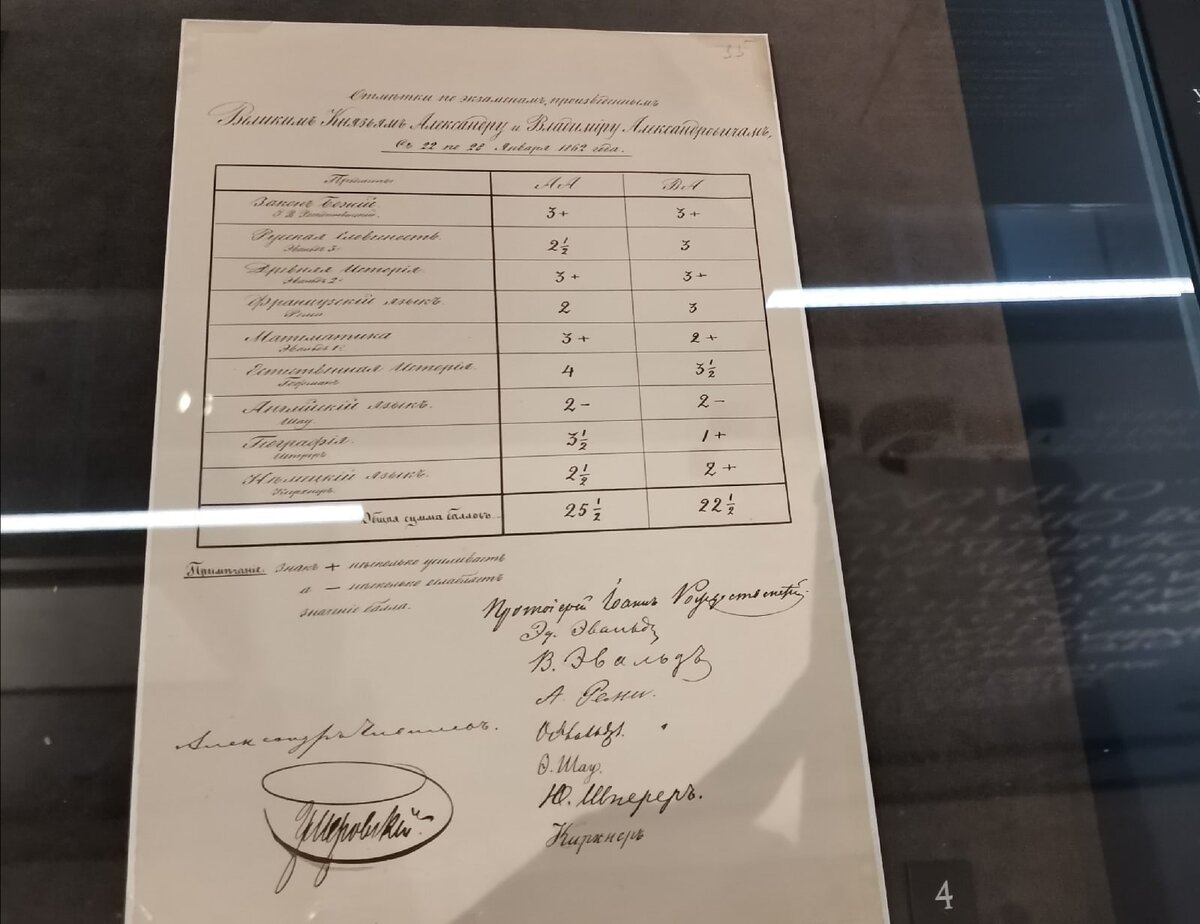 35
Отмѣтки по экзаменамъ, произведеннымъ
Великимъ Князьямъ Александру и Владиміру Александровичамъ,
Съ 22 по 28 Января 1862 года.
Предметы АА ВА
Законъ Божій. 3+ 3+
Русская Словесность. 2½ 3
Эвальдъ 3й
Древняя Исторія. 3+ 3+
Эвальдъ 2й
Французскій языкъ. 2 3
Реми
Математика 3+ 2+
Эвальдъ 1й
Естественная Исторія. 4 3½
Англійскій языкъ. 2- 2-
Шау.
Географія. 3½ 1+
Нѣмецкій языкъ. 2½ 2+
Киркнеръ.
Общая сумма балловъ. 25½ 22½
Примѣчаніе. Знакъ + нѣсколько усиливаетъ
а — нѣсколько ослабляетъ
значеніе балла.
Протоіерей Іоаннъ Рождественскій.
Эд. Эвальдъ
В. Эвальдъ
А. Реми.
Александръ
Э. Шау.
Ю. Шпереръ.
Киркнеръ
4